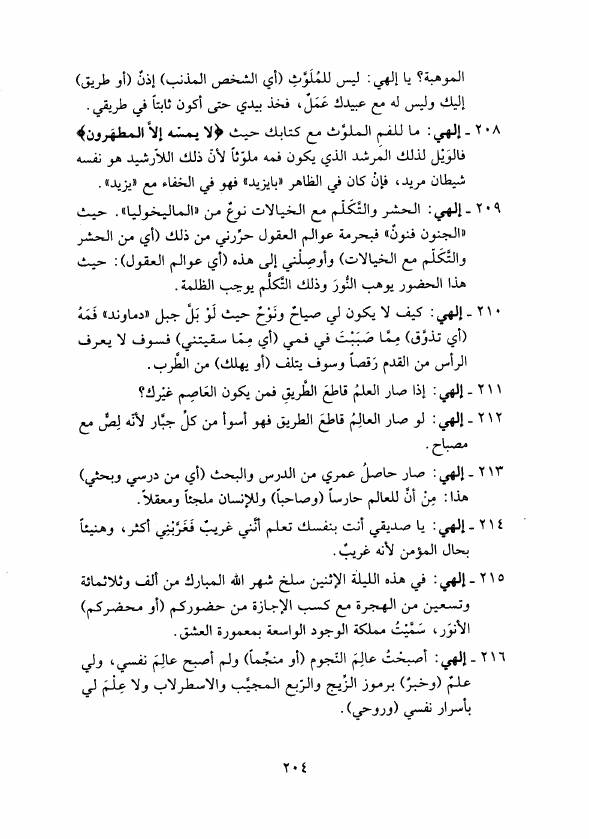 الموهبة؟ يا إلهي: ليس للمُلَوَّثِ (أي الشخص المذنب) إذنٌ (أو طريق)
إليك وليس له مع عبيدك عَمَلٌ، فخذ بيدي حتى أكون ثابتاً في طريقي.
٢٠٨ ـ إلهي: ما للفم الملوّث مع كتابك حيث ﴿لا يمسّه إلاّ المطهرون﴾
فالوَيْل لذلك المرشد الذي يكون فمه ملوّثاً لأنّ ذلك اللاّرشيد هو نفسه
شيطان مريد، فإنْ كان في الظاهر «بايزيد» فهو في الخفاء مع «يزيد».
٢٠٩ ـ إلهي: الحشر والتَّكلّم مع الخيالات نوعٌ من «الماليخوليا». حيث
«الجنون فنونٌ» فبحرمة عوالم العقول حرِّرني من ذلك (أي من الحشر
والتَّكلّم مع الخيالات) وأوصِلْني إلى هذه (أي عوالم العقول): حيث
هذا الحضور يوهب النُّورَ وذلك التكلُّم يوجب الظلمة.
٢١٠ ـ إلهي: كيف لا يكون لي صياحٌ ونَوْحٌ حيث لَوْ بَلَّ جبل «دماوند» فَمَهُ
(أي تذوَّق) مِمَّا صَبَبْتَ في فمي (أي مِمّا سقيتني) فسوف لا يعرف
الرأس من القدم رَقصاً وسوف يتلف (أو يهلك) من الطَّرب.
٢١١ ـ إلهي: إذا صار العلمُ قاطعَ الطَّريقِ فمن يكون العَاصِم غيْرك؟
٢١٢ ـ إلهي: لو صار العالِمُ قاطعَ الطريق فهو أسوأ من كلّ جبَّار لأنّه لِصٌّ مع
مصباح.
٢١٣ ـ إلهي: صار حاصلُ عمري من الدرس والبحث (أي من درسي وبحثي)
هذا: مِنْ أنَّ للعالم حارساً (وصاحباً) وللإنسان ملجئاً ومعقلاً.
٢١٤ ـ إلهي: يا صديقي أنت بنفسك تعلم أنَّني غريبٌ فَغَرِّبْنِي أكثر، وهنيئاً
بحال المؤمن لأنه غريبٌ.
٢١٥ ـ إلهي: في هذه الليلة الإثنين سلخ شهر الله المبارك من ألف وثلاثمائة
وتسعين من الهجرة مع كسب الإجازة من حضوركم (أو محضركم)
الأنوَر، سَمَّيْتُ مملكة الوجود الواسعة بمعمورة العشق.
٢١٦ ـ إلهي: أصبحْتُ عالِمَ النّجوم (أو منجِّماً) ولم أصبح عالِمَ نفسي، ولي
علمٌ (وخبرٌ) برموز الزِّيج والرّبع المجيَّب والاسطرلاب ولا عِلْمَ لي
بأسرار نفسي (وروحي).
٢٠٤